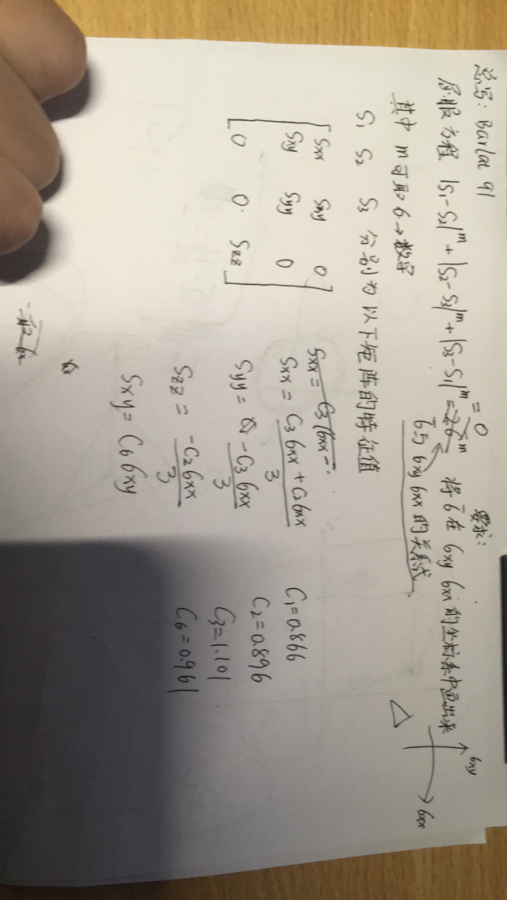 总写: Barlat 91
要求:
屈服方程 |S₁-S₂|ᵐ + |S₂-S₃|ᵐ + |S₃-S₁|ᵐ = 2σ̄ᵐ 将σ̄在σxy σxx的坐标系中画出来
= 0
σ̄与σxy σxx的关系式
其中 m可取6→数字
S₁ S₂ S₃ 分别为以下矩阵的特征值
Sxx Sxy 0
Sxy Syy 0
0 0 Szz
Sxx = (C₃σxx + C₂σxx)/3
Syy = -C₃σxx/3
Szz = -C₂σxx/3
Sxy = C₆σxy
C₁=0.866
C₂=0.896
C₃=1.101
C₆=0.961
σxy
σxx